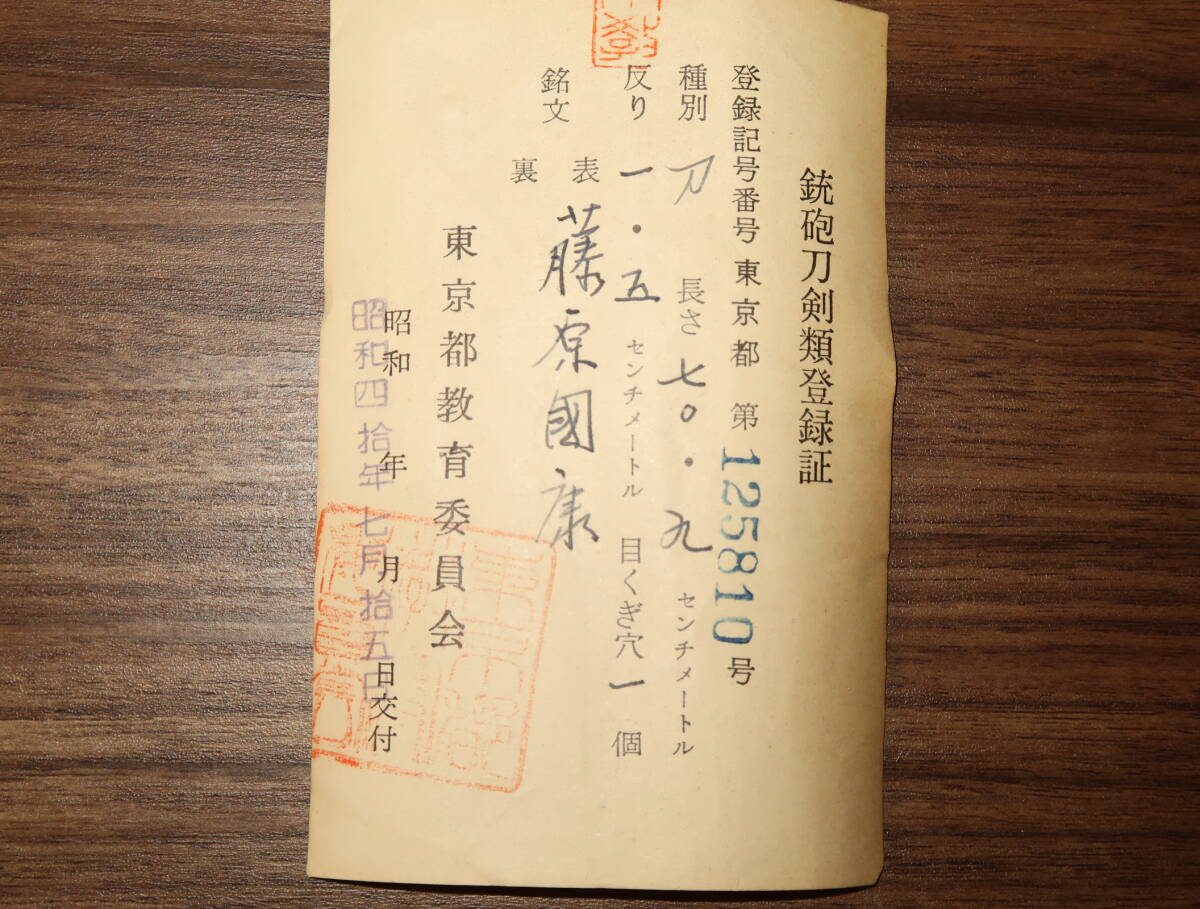 銃砲刀剣類登録証
登録記号番号 東京都 第 125810 号
種別 刀 長さ 七〇・九 センチメートル
反り 一・五 センチメートル 目くぎ穴 一 個
銘文 表 藤原國康
裏
東京都教育委員会
昭和 年 月 日交付
昭和四拾年七月拾五日